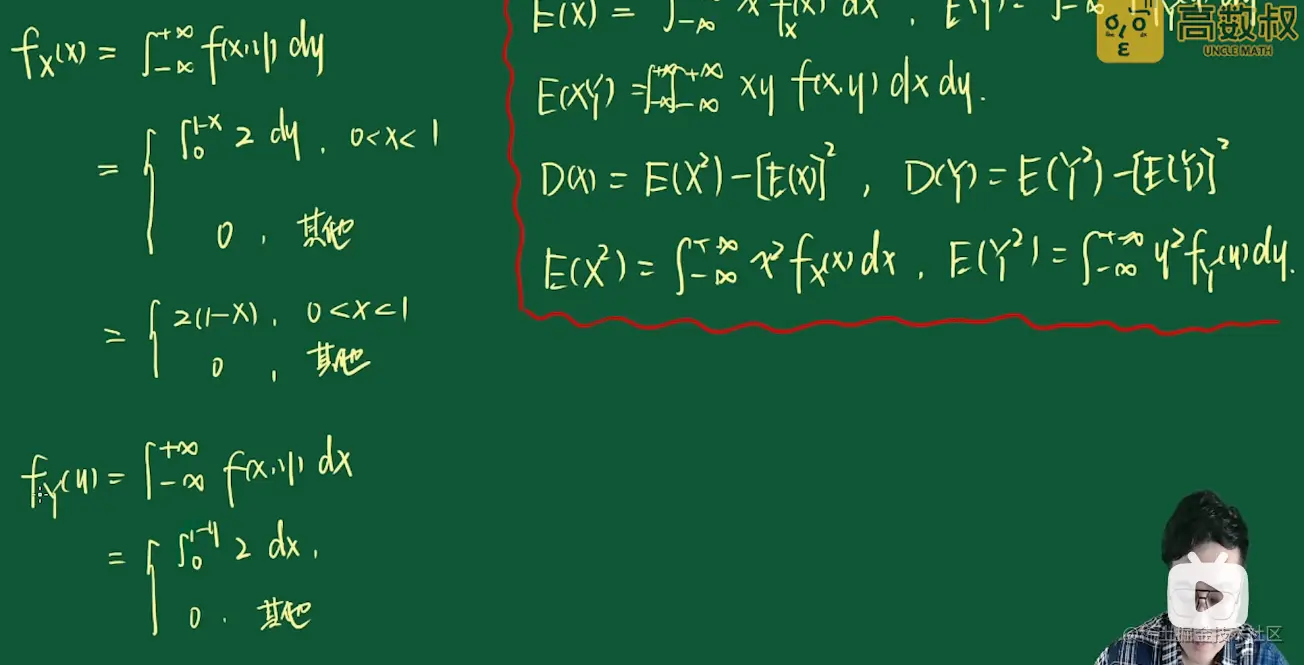 f_X(x) = ∫_{-∞}^{+∞} f(x,y) dy
= { ∫_0^{1-x} 2 dy , 0<x<1
0 , 其他
= { 2(1-x) , 0<x<1
0 , 其他
f_Y(y) = ∫_{-∞}^{+∞} f(x,y) dx
= { ∫_0^{1-y} 2 dx ,
0 . 其他
E(X) = ∫_{-∞} x f_X(x) dx , E(Y) = ∫_{-∞}
E(XY) = ∫_{-∞}^{+∞}∫_{-∞}^{+∞} xy f(x,y) dx dy.
D(X) = E(X²)-[E(X)]² , D(Y) = E(Y²)-[E(Y)]²
E(X²) = ∫_{-∞}^{+∞} x² f_X(x) dx , E(Y²) = ∫_{-∞}^{+∞} y² f_Y(y) dy.
高数叔
UNCLE MATH
@稀土掘金技术社区